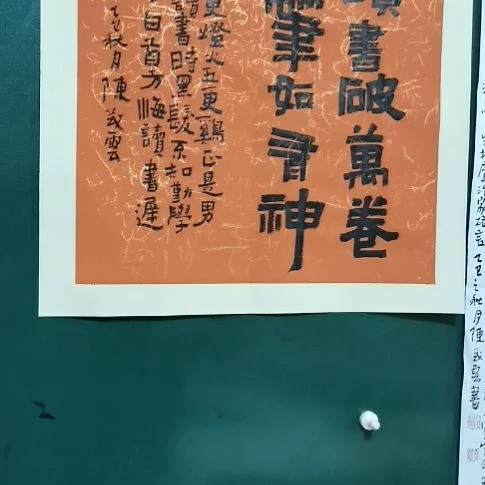 讀書破萬卷
筆如有神
更燈火五更鷄正是男
讀書時黑髮不知勤學
白首方悔讀書遲
乙巳秋月陳雲
治家格言乙巳之秋月陳雲書